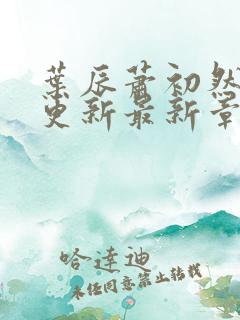 葉辰蕭初然
更新最新章
哈達迪
未经同意禁止转载